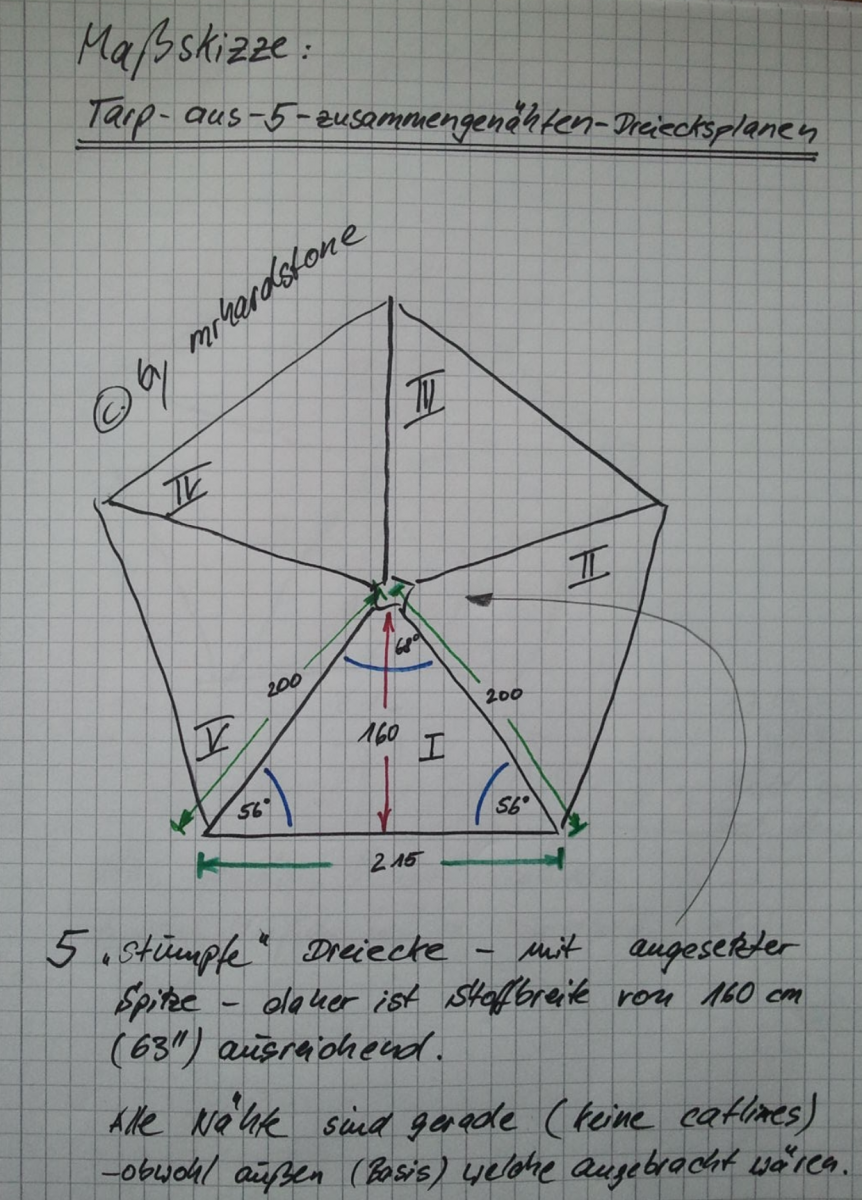 Maßskizze:
Tarp-aus-5-zusammengenähten-Dreiecksplanen
© by mrhardstone
III
IV
II
68°
200
200
160
I
V
56°
56°
215
5 „stumpfe" Dreiecke - mit angesetzter
Spitze - daher ist Stoffbreite von 160 cm
(63") ausreichend.
Alle Nähte sind gerade (keine catlines)
-obwohl außen (Basis) welche angebracht wären.